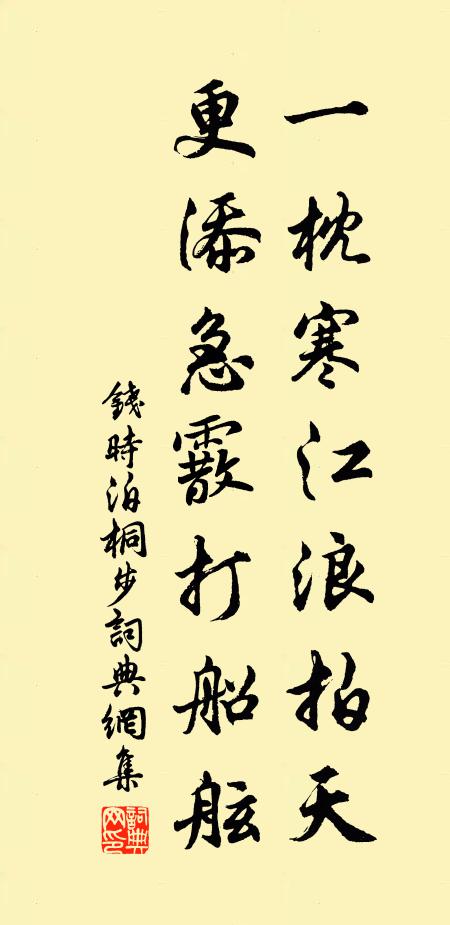 一枕寒江浪拍天
更添急霰打船舷
錢時泊桐步詞典網集
詞典網印